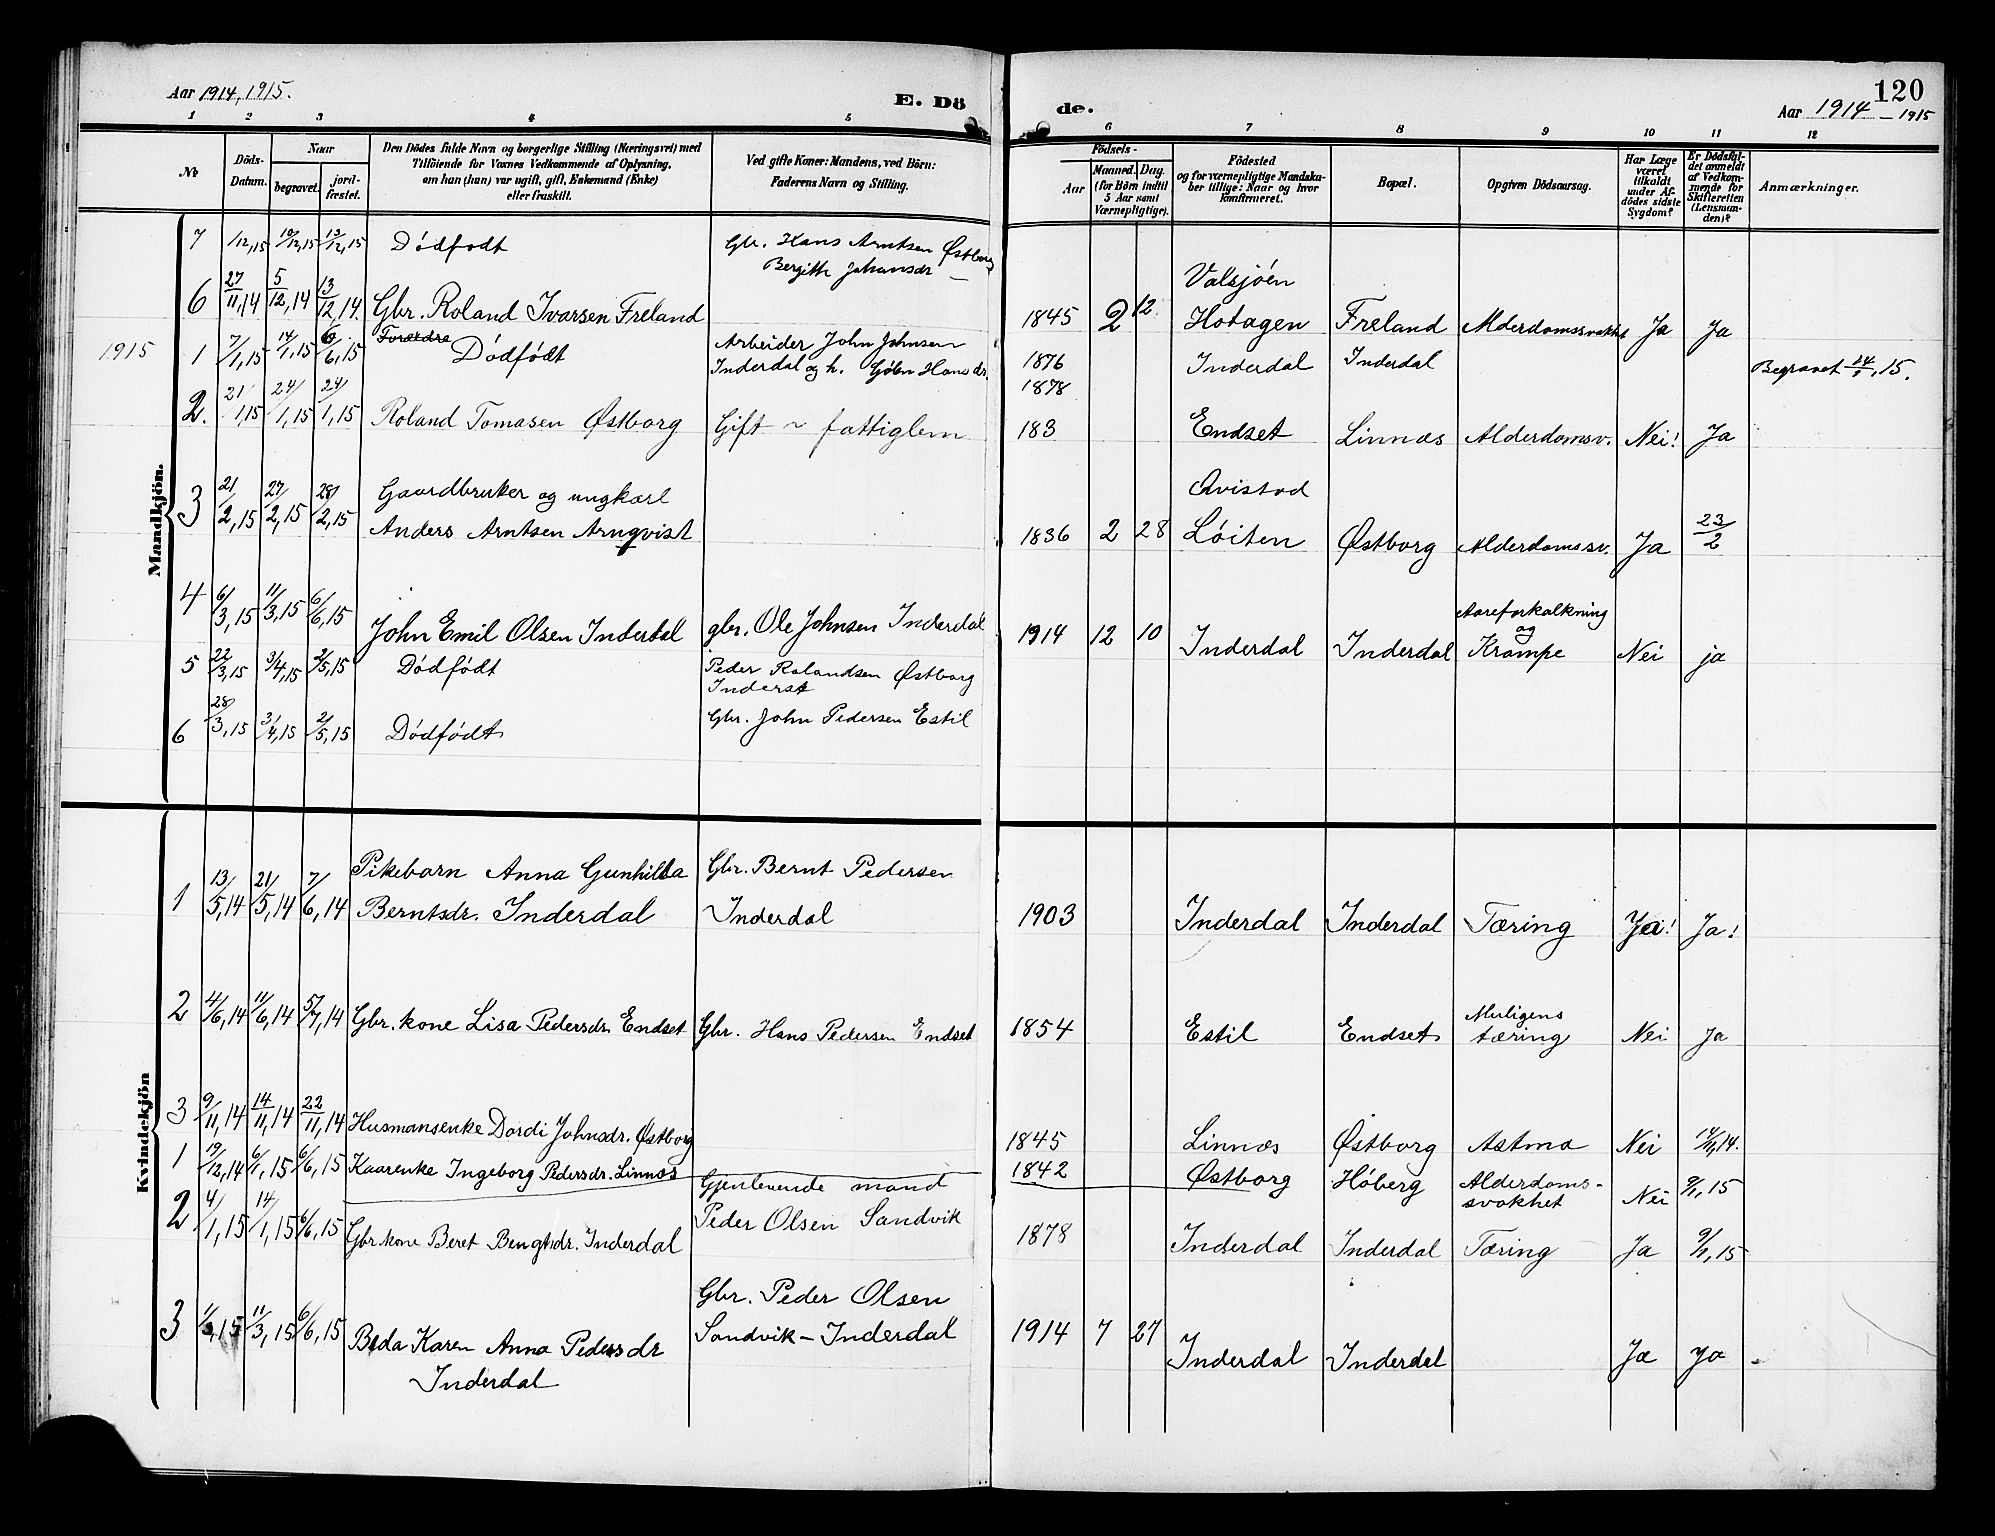 Aar 1914, 1915.
E. Dö
de.
120
Aar 1914 – 1915
1 2 3 4 5 6 7 8 9 10 11 12
№
Döds-
Datum.
Naar
begravet.
jord-
fæstet.
Den Dödes fulde Navn og borgerlige Stilling (Næringsvei) med
Tilföiende for Voxnes Vedkommende af Oplysning,
om han (hun) var ugift, gift, Enkemand (Enke)
eller fraskilt.
Ved gifte Koner: Mandens, ved Börn:
Faderens Navn og Stilling.
Födsels-
Aar
Maaned. Dag.
(for Börn indtil
5 Aar samt
Værnepligtige).
Födested
og for værnepligtige Mandska-
ber tillige: Naar og hvor
konfirmeret.
Bopæl.
Opgiven Dödsaarsag.
Har Læge
været
tilkaldt
under Af-
dödes sidste
Sygdom?
Er Dödsfal-
det anmeldt
af Vedkom-
mende for
Skifteretten
(Lensman-
den)?
Anmærkninger.
Mandkjön.
7 1/12,15 10/12,15 13/12,15 Dödfödt Gbr. Hans Arntsen Østborg
Bergitte Johansdr —
6 27/11,14 5/12,14 13/12,14. Gbr. Roland Ivarsen Freland 1845 2 12 Valsjöen
Hotagen Freland Alderdomssvakhet Ja Ja
1915 1 7/1,15 14/1,15 6/6,15 Forældre Dödfödt Arbeider John Johnsen
Inderdal og h. Gölin Hansdr. 1876
1878 Inderdal Inderdal Begravet 24/1,15.
2. 21/1,15 24/1,15 24/1,15 Roland Tomasen Østborg Gift ~ fattiglem 183 Endset Linnæs Alderdomsv. Nei! Ja
3 21/2,15 27/2,15 28/2,15 Gaardbruker og ungkarl
Anders Arntsen Arnqvist 1836 2 28 Qvistad
Löiten Østborg Alderdomssv. Ja 23/2
4 6/3,15 11/3,15 6/6,15 John Emil Olsen Inderdal gbr. Ole Johnsen Inderdal 1914 12 10 Inderdal Inderdal Aareforkalkning
og
Krampe Nei ja
5 22/3,15 3/4,15 2/5,15 Dödfödt Peder Rolandsen Østborg
Inderst
6 28/3,15 3/4,15 2/5,15 Dödfödt Gbr. John Pedersen Estil
Kvindekjön
1 13/5,14 21/5,14 7/6,14 Pikebarn Anna Gunhilda
Berntsdr. Inderdal Gbr. Bernt Pedersen
Inderdal 1903 Inderdal Inderdal Tæring Ja! Ja!
2 4/6,14 11/6,14 5/7,14 Gbr. kone Lisa Pedersdr. Endset Gbr. Hans Pedersen Endset 1854 Estil Endset Muligens
tæring Nei Ja
3 9/11,14 14/11,14 22/11,14 Husmansenke Dordi Johnsdr. Østborg 1845 Linnæs Østborg Astma Nei 14/11,14.
1 19/12,14 6/1,15 6/6,15 Kaarenke Ingeborg Pedersdr. Linnæs 1842 Østborg Höberg Alderdoms-
svakhet Nei 9/1,15
2 4/1,15 14/1,15 6/6,15 Gbr kone Beret Bengtsdr. Inderdal Gjenlevende mand
Peder Olsen Sandvik 1878 Inderdal Inderdal Tæring Ja 9/1,15
3 1/3,15 11/3,15 6/6,15 Beda Karen Anna Pedersdr
Inderdal Gbr. Peder Olsen
Sandvik – Inderdal 1914 7 27 Inderdal Inderdal Ja Ja